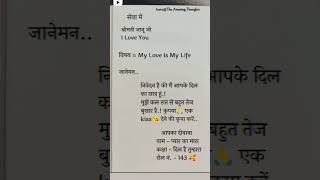 Insta@The Amazing Thoughts
सेवा में
श्रीमती जानू जी
I Love You
विषय = My Love Is My Life
जानेमन..
जानेमन..
निवेदन है की मैं आपके दिल
का छात्र हूं.!
मुझे कल रात से बहुत तेज
बुखार है.! कृपया🙏 एक
kiss😘 देने की कृपा करें..
आपका दीवाना
नाम - प्यार का मारा
कक्षा - दिल है तुम्हारा
रोल नं. - 143 🥰